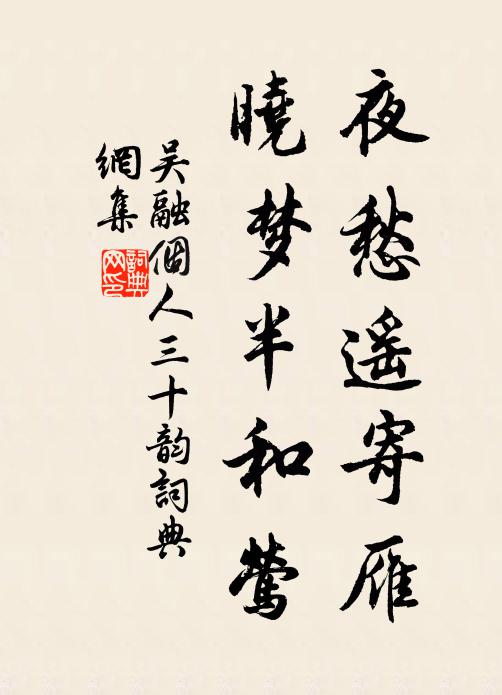 夜愁遥寄雁
曉梦半和莺
吴融個人三十韵詞典
網集
詞典
网印